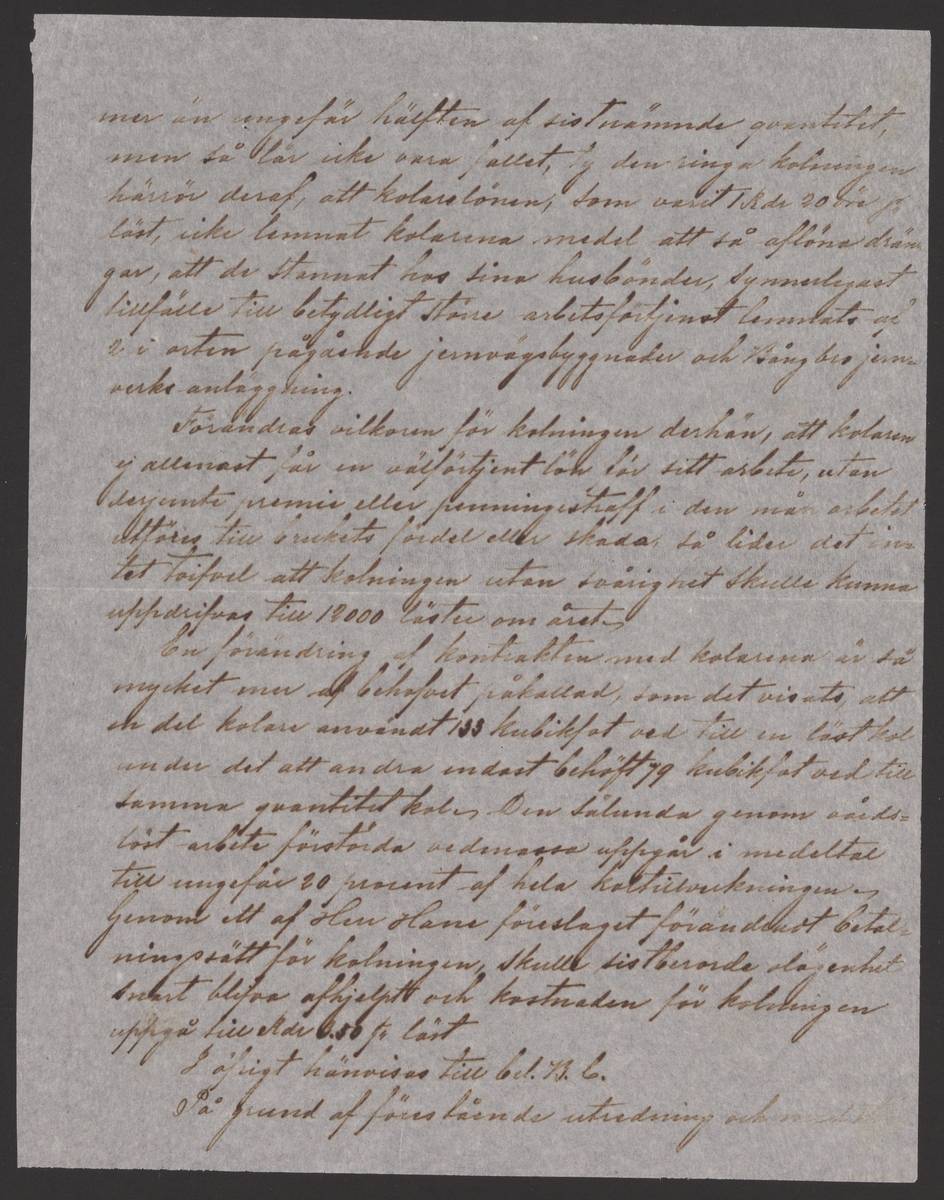 mer än ungefär hälften af sistnämnde qvantitet,
men så lär icke vara fallet, ty den ringa kolningen
härrör deraf, att kolarelönen, som varit 1 Rdr 20 öre pr
läst, icke lemnat kolarena medel att så aflöna drän-
gar, att de stannat hos sina husbönder, synnerligast
tillfälle till betydligt större arbetsförtjenst lemnats vid
2 i orten pågående jernvägsbyggnader och Bångbro jern-
verks anläggning.
Förändras vilkoren för kolningen derhän, att kolaren
ej allenast får en välförtjent lön för sitt arbete, utan
derjemte premie eller penningestraff i den mån arbetet
utföres till brukets fördel eller skada, så lider det in-
tet tvifvel att kolningen utan svårighet skulle kunna
uppdrifvas till 12000 läster om året.
En förändring af kontrakten med kolarena är så
mycket mer af behofvet påkallad, som det visats, att
en del kolare användt 133 kubikfot ved till en läst kol
under det att andra endast behöft 79 kubikfot ved till
samma qvantitet kol. Den sålunda genom vårds-
löst arbete förstörda vedmassa uppgår i medeltal
till ungefär 20 procent af hela koltillverkningen.
Genom ett af Herr Hane föreslaget förändradt betal-
ningssätt för kolningen, skulle sistberörde olägenhet
snart blifva afhjelpt och kostnaden för kolningen
uppgå till Rdr .50 pr läst
I öfrigt hänvisas till bil. B. C.
På grund af förestående utredning och med